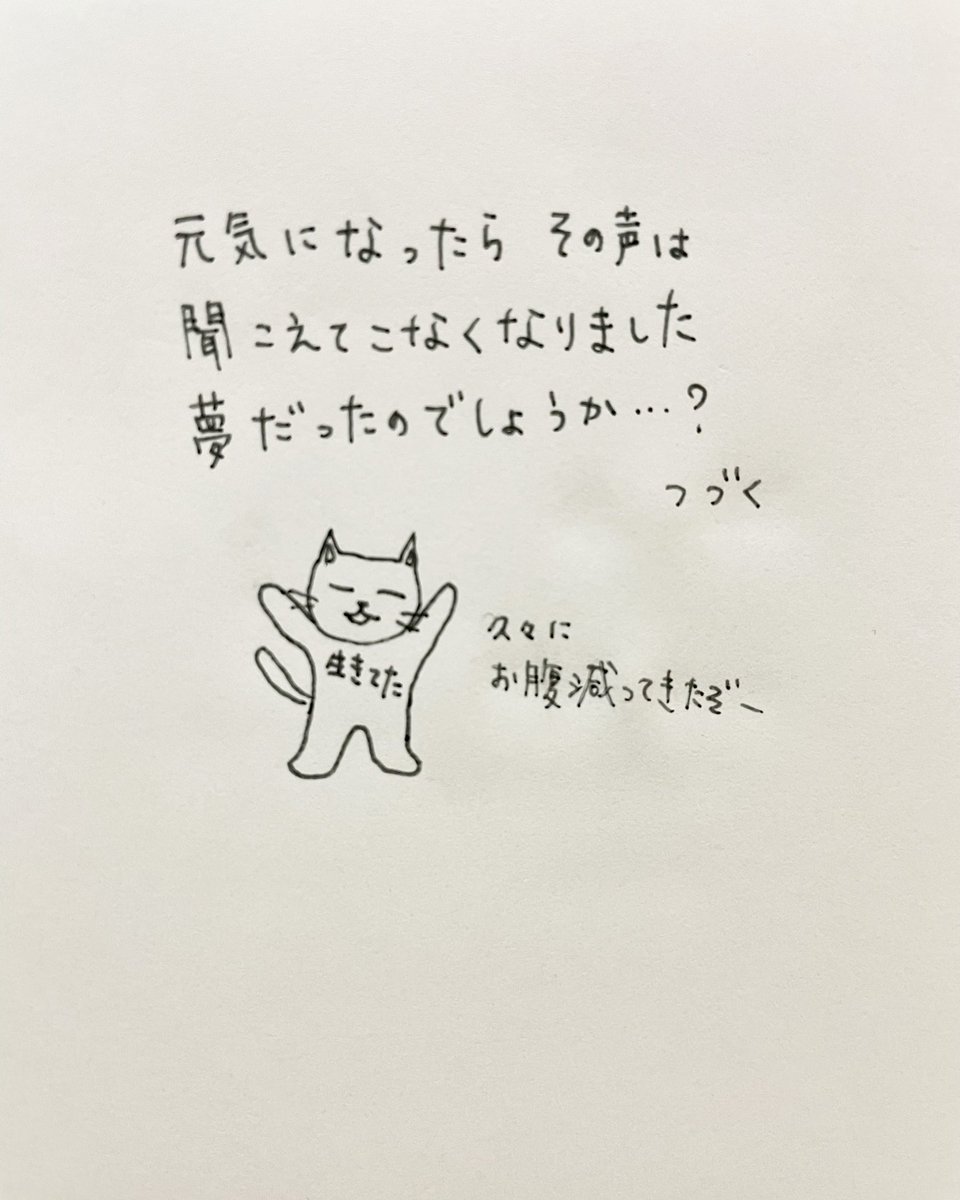 元気になったら その声は
聞こえてこなくなりました
夢だったのでしょうか…?
つづく
生きてた
久々に
お腹減ってきたぞー